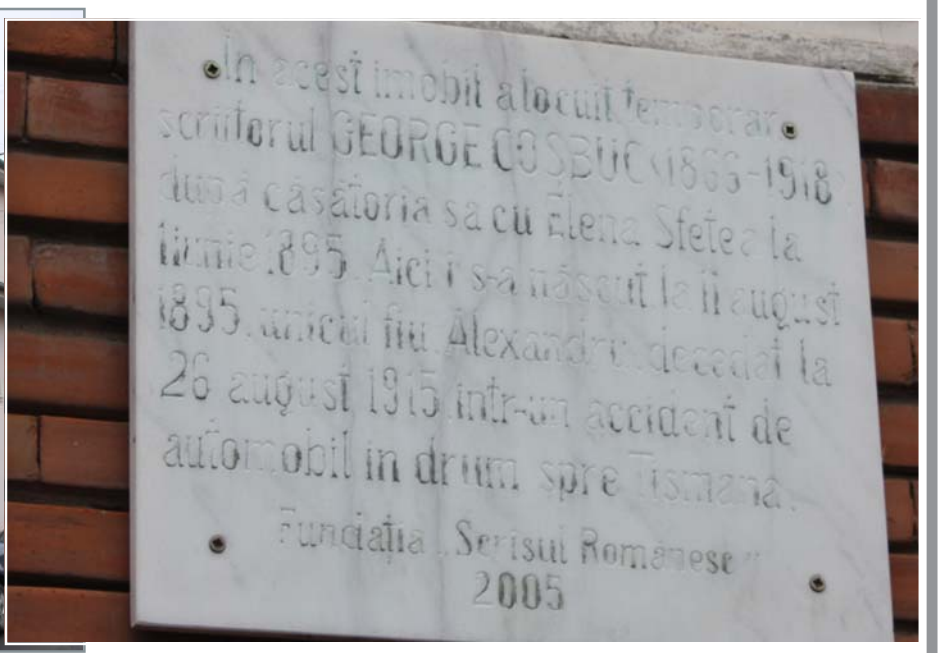 In acest imobil a locuit temporar
scriitorul GEORGE COSBUC (1866-1918)
după căsătoria sa cu Elena Sfetea la
1895. Aici i s-a născut la 11 august
1895, unicul fiu Alexandru, decedat la
26 august 1915 intr-un accident de
automobil in drum spre Tismana.
Fundația „Scrisul Românesc"
2005